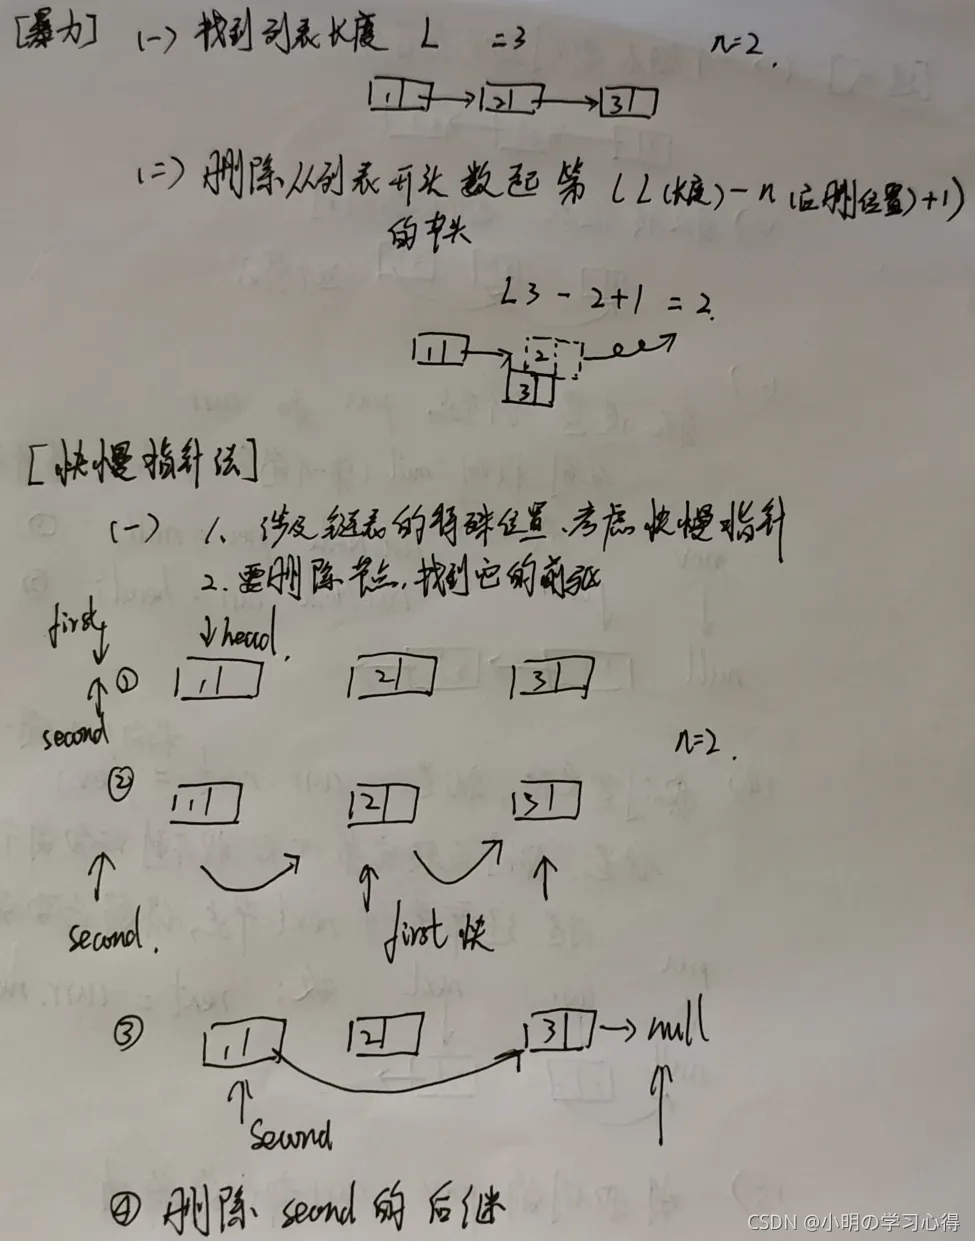 [暴力] (一) 找到列表长度 L =3 n=2.
1 2 3
(二) 删除从列表开头数起第 (L(长度)-n(应删位置)+1)
的节点
L 3-2+1=2.
1 2
3
[快慢指针法]
(一) 1. 涉及链表的特殊位置、考虑快慢指针
2. 要删除节点,找到它的前驱
first ↓head.
① 1 2 3
second
n=2.
② 1 2 3
second. first 快
③ 1 2 3 → null
second
④ 删除 second 的后继
CSDN @小明の学习心得